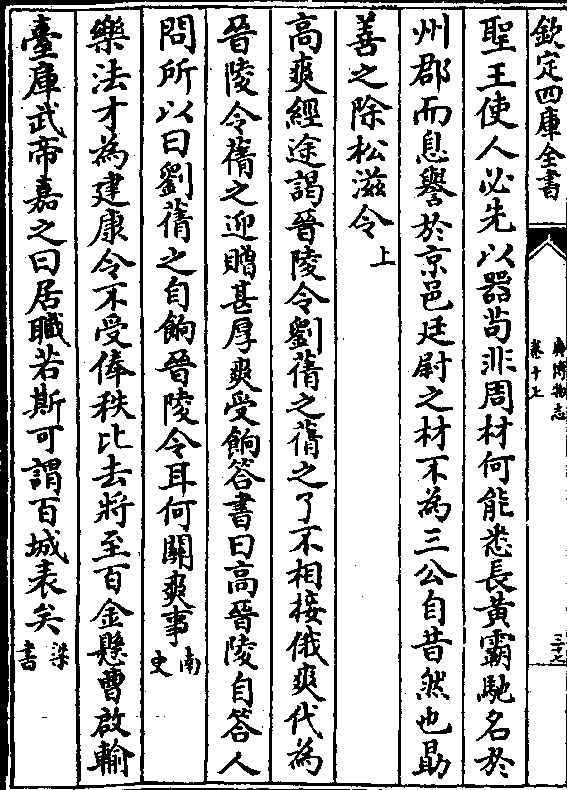 欽定四庫全書
廣博物志
卷十七
三十七
聖王使人必先以器茍非周材何能悉長黃霸馳名於
州郡而息譽於京邑廷尉之材不為三公自昔然也勗
善之除松滋令上
高爽經途謁晉陵令劉蒨之蒨之了不相接俄爽代為
晉陵令蒨之迎贈甚厚爽受餉答書曰高晉陵自答人
問所以曰劉蒨之自餉晉陵令耳何關爽事南史
樂法才為建康令不受俸秩比去將至百金懸曹啟輸
臺庫武帝嘉之曰居職若斯可謂百城表矣梁書